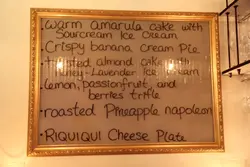 Warm amarula cake with
Sourcream Ice Cream
Crispy banana cream Pie
toasted almond cake with
Honey-Lavender Ice cream
Lemon, passionfruit, and
berries trifle
• roasted Pineapple napoleon
• RIQUIQUI Cheese Plate